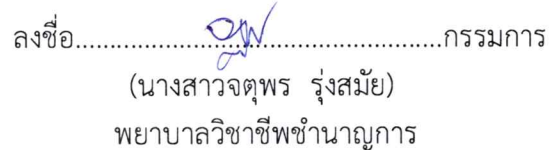 ลงชื่อ................................................กรรมการ
(นางสาวจตุพร รุ่งสมัย)
พยาบาลวิชาชีพชำนาญการ